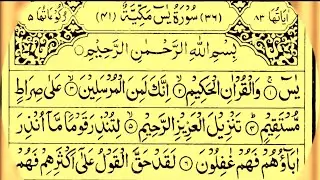 اٰیَاتُهَا ٨٣ (٣٦) سُوْرَةُ يٰسٓ مَكِّيَّةٌ (٤١) رُكُوْعَاتُهَا ٥
بِسْمِ اللّٰهِ الرَّحْمٰنِ الرَّحِيْمِ
يٰسٓ ۝١ وَالْقُرْاٰنِ الْحَكِيْمِ ۝٢ اِنَّكَ لَمِنَ الْمُرْسَلِيْنَ ۝٣ عَلٰى صِرَاطٍ
مُّسْتَقِيْمٍ ۝٤ تَنْزِيْلَ الْعَزِيْزِ الرَّحِيْمِ ۝٥ لِتُنْذِرَ قَوْمًا مَّاۤ اُنْذِرَ
اٰبَآؤُهُمْ فَهُمْ غٰفِلُوْنَ ۝٦ لَقَدْ حَقَّ الْقَوْلُ عَلٰۤى اَكْثَرِهِمْ فَهُمْ